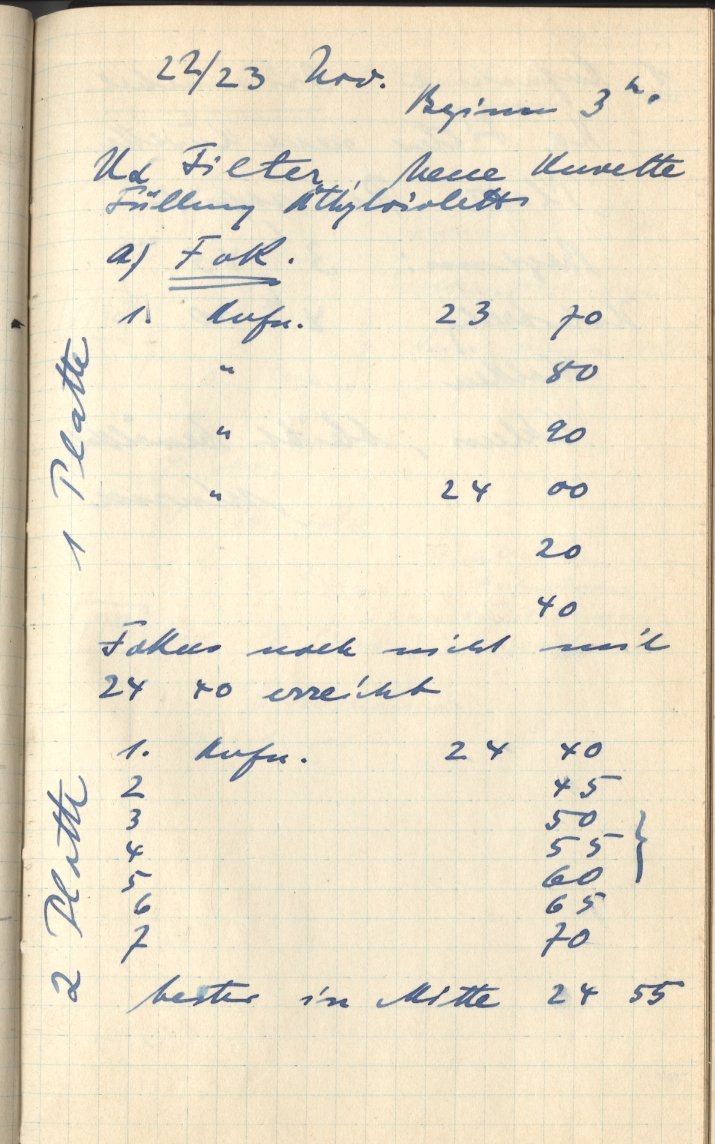 22/23 Nov.
Beginn 3ʰ.
Uα Filter, neue Kuvette
Füllung Äthylviolett
a) Fok.
1 Platte
1. Aufn. 23 70
" 80
" 90
" 24 00
20
40
Fokus noch nicht mit
24 40 erreicht
2 Platte
1. Aufn. 24 40
2 45
3 50
4 55
5 60
6 65
7 70
bester in Mitte 24 55